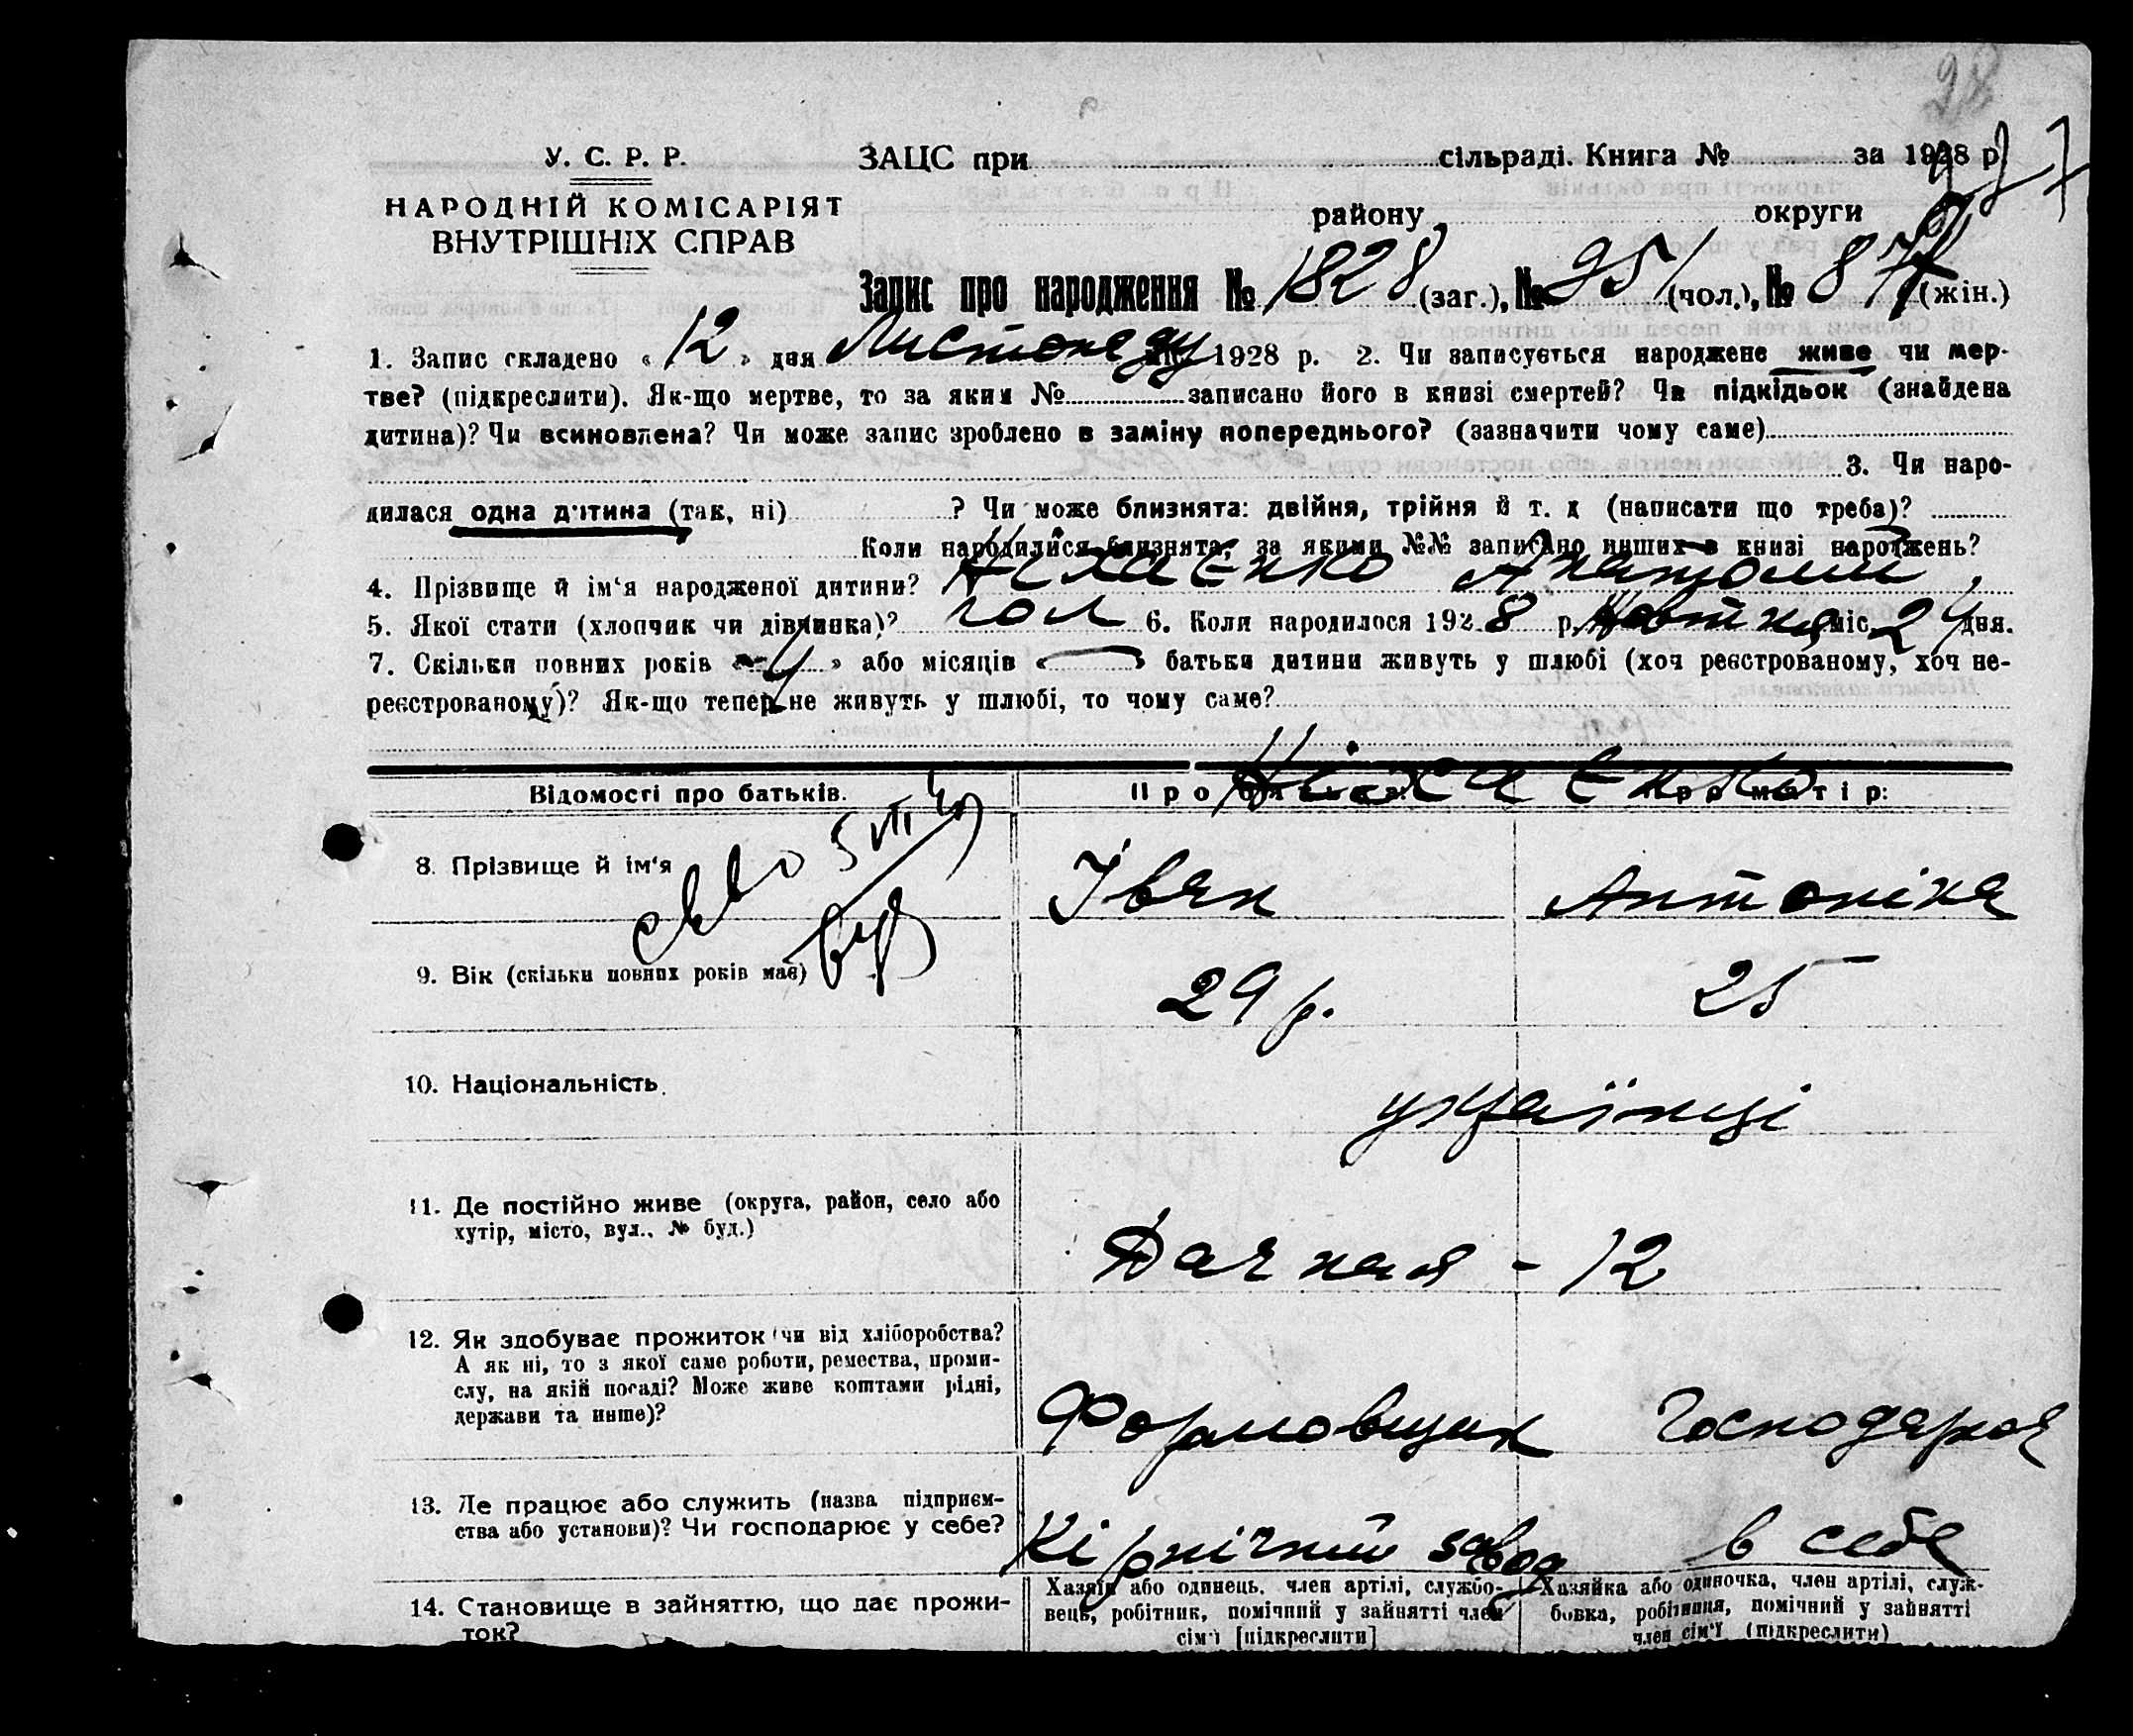 28
У. С. Р. Р.
ЗАЦС при сільраді. Книга № за 1928 р.
НАРОДНІЙ КОМІСАРІЯТ
ВНУТРІШНІХ СПРАВ
району округи
Запис про народження № 1828 (заг.), № 951 (чол.), № 877 (жін.)
1. Запис складено « 12 » дня Листопаду 1928 р. 2. Чи записується народжене живе чи мер-
тве? (підкреслити). Як-що мертве, то за яким № записано його в книзі смертей? Чи підкідьок (знайдена
дитина)? Чи всиновлена? Чи може запис зроблено в заміну попереднього? (зазначити чому саме)
3. Чи наро-
дилася одна дитина (так, ні) ? Чи може близнята: двійня, трійня й т. д (написати що треба)?
Коли народилися близнята, за якими №№ записано инших в книзі народжень?
4. Прізвище й ім‘я народженої дитини? Ніхаєнко Анатолий
5. Якої стати (хлопчик чи дівчинка)? чол 6. Коли народилося 1928 р. Жовтня міс. 24 дня.
7. Скільки повних років « 4 » або місяців « — » батьки дитини живуть у шлюбі (хоч реєстрованому, хоч не-
реєстрованому)? Як-що тепер не живуть у шлюбі, то чому саме?
Ніхаєнко
Відомості про батьків. Про батька: Про матір:
8. Прізвище й ім‘я Іван Антоніна
9. Вік (скільки повних років має) 29 р. 25
10. Національність українці
11. Де постійно живе (округа, район, село або
хутір, місто, вул., № буд.)
Дачная - 12
12. Як здобуває прожиток (чи від хліборобства?
А як ні, то з якої саме роботи, ремества, проми-
слу, на якій посаді? Може живе коштами рідні,
держави та инше)?
Формовщик Господарка
13. Де працює або служить (назва підприєм-
ства або установи)? Чи господарює у себе?
Кірпічний завод в себе
14. Становище в зайняттю, що дає прожи-
ток?
Хазяїн або одинець, член артілі, службо-
вець, робітник, помічний у зайнятті член
сім‘ї [підкреслити]
Хазяйка або одиночка, член артілі, служ-
бовка, робітниця, помічний у зайнятті
член сім‘ї (підкреслити)